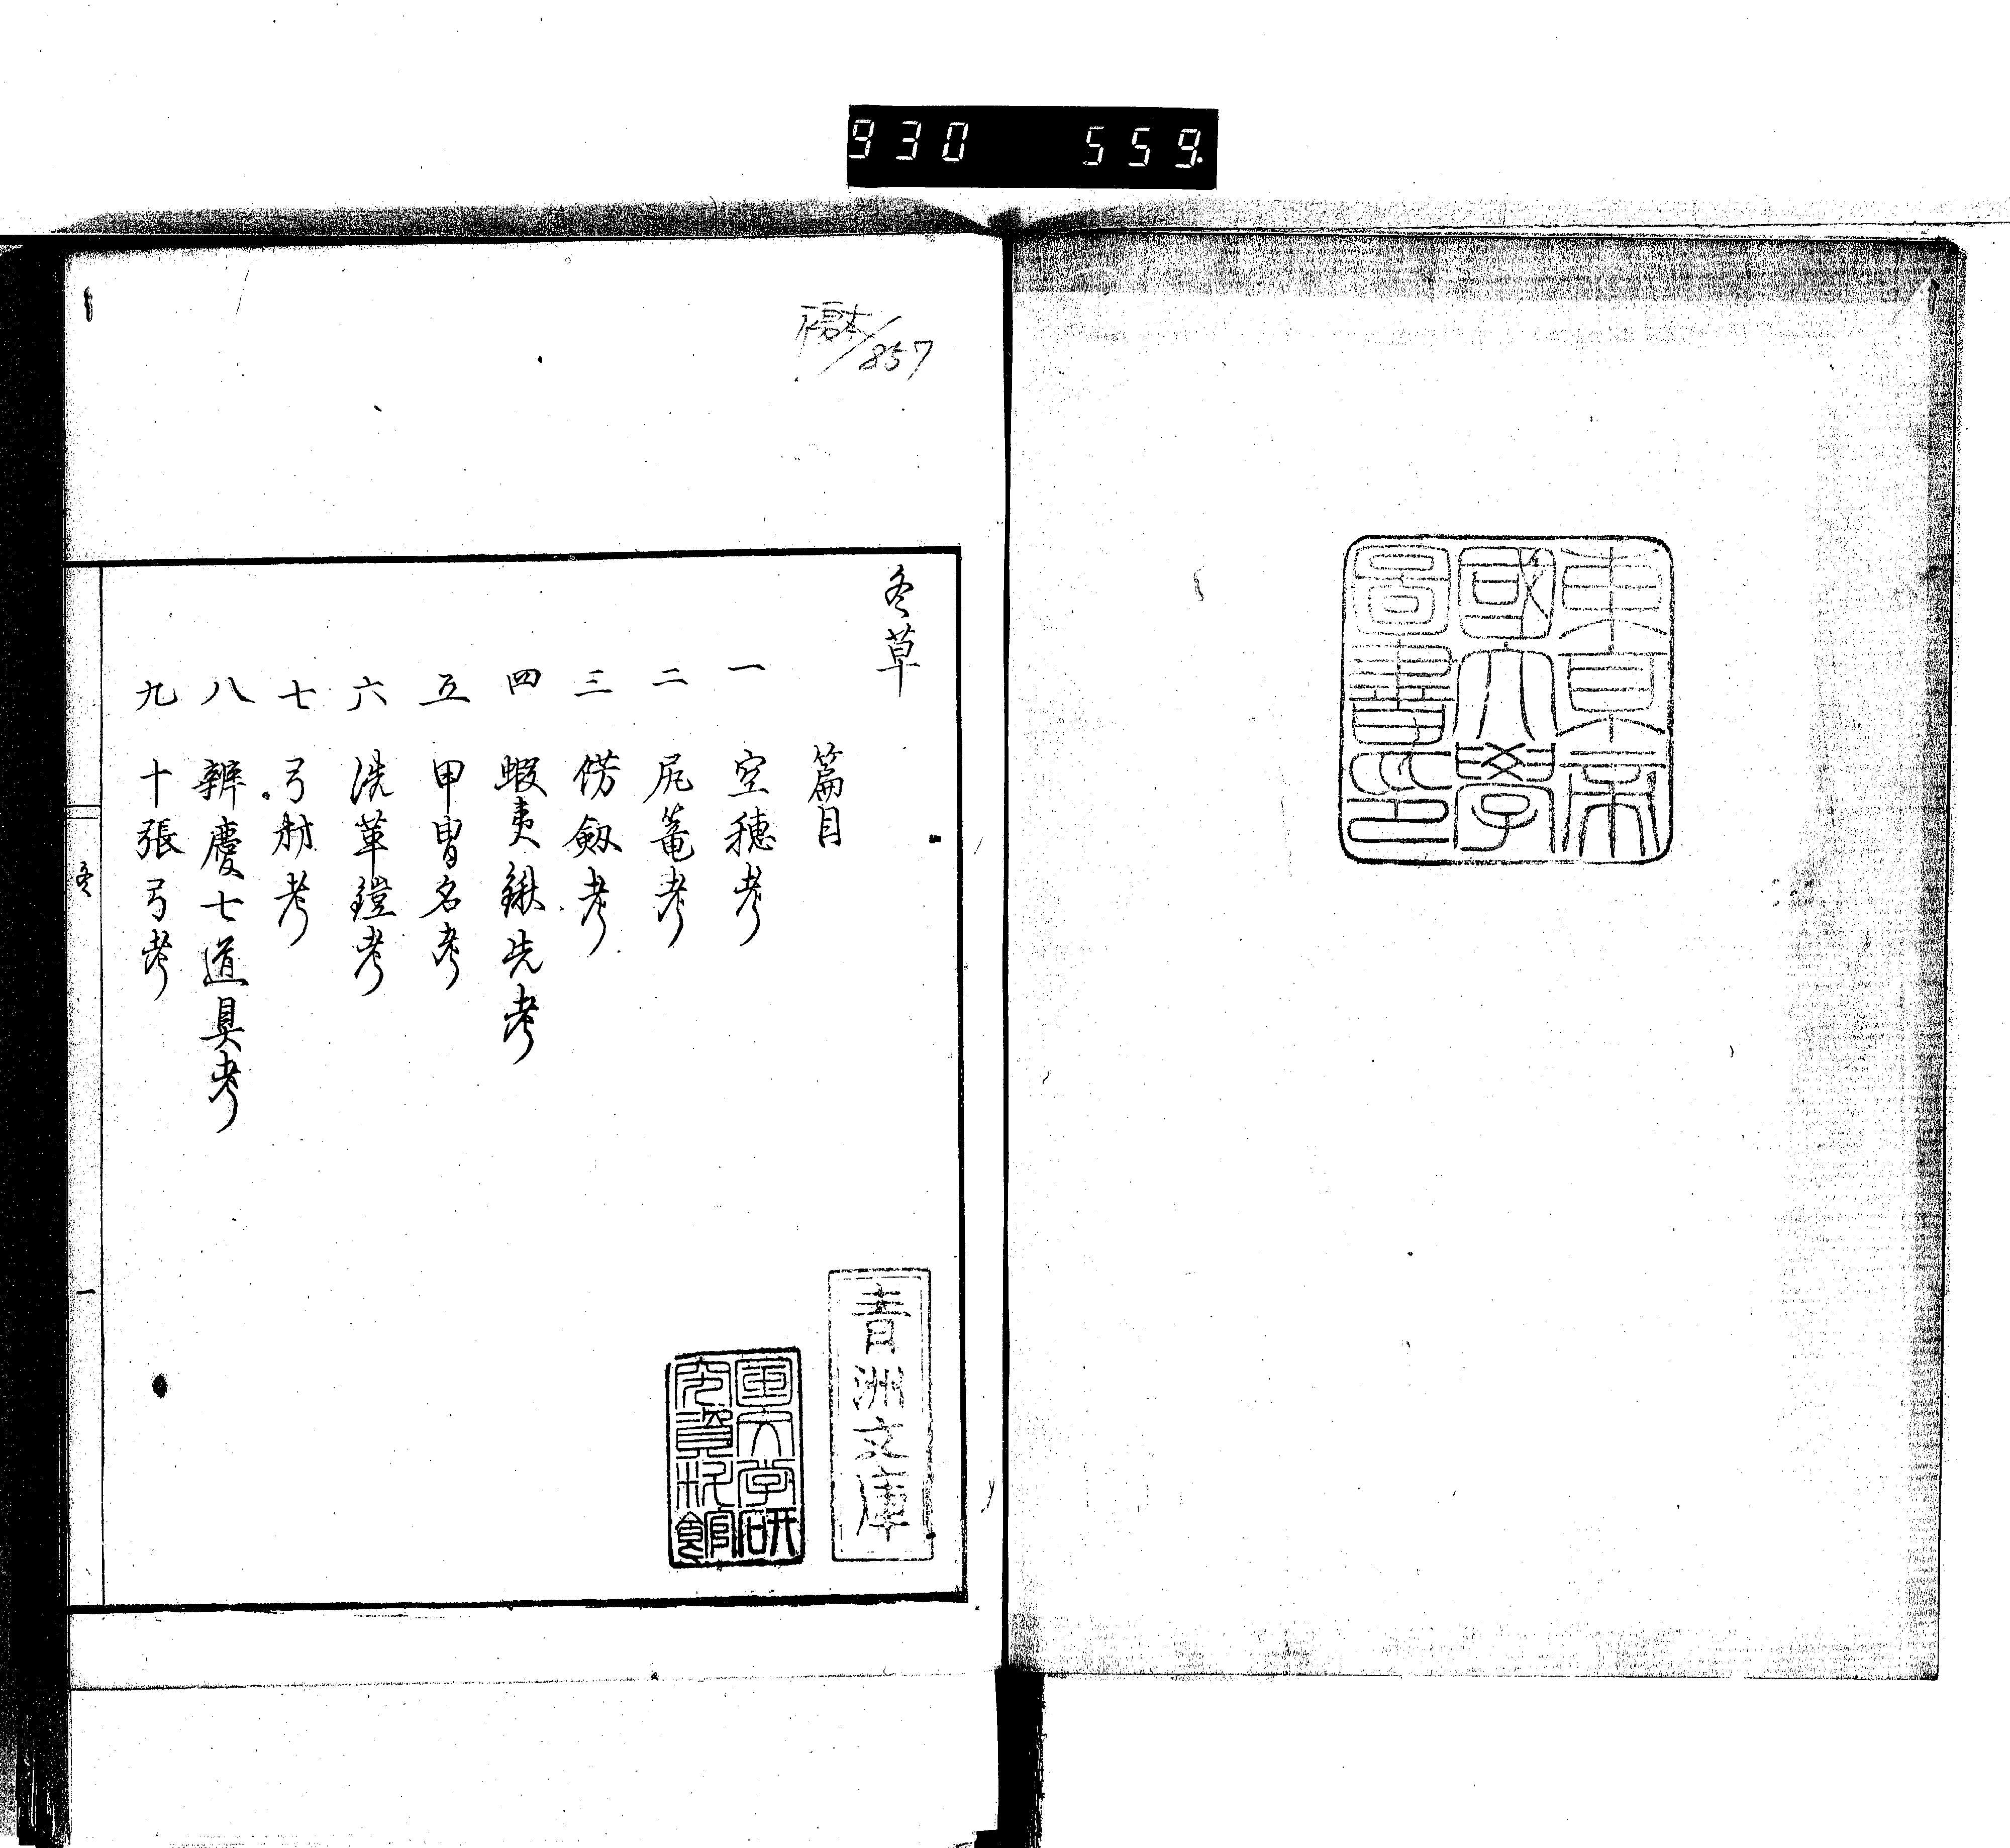 930 559
東京帝
國大學
圖書印
橋本/857
冬草
篇目
一 空穂考
二 尻篭考
三 僗劔考
四 蝦夷鍬先考
五 甲冑名考
六 洗革鎧考
七 弓材考
八 辨慶七道具考
九 十張弓考
青洲文庫
東大学研
究資料館
冬
一